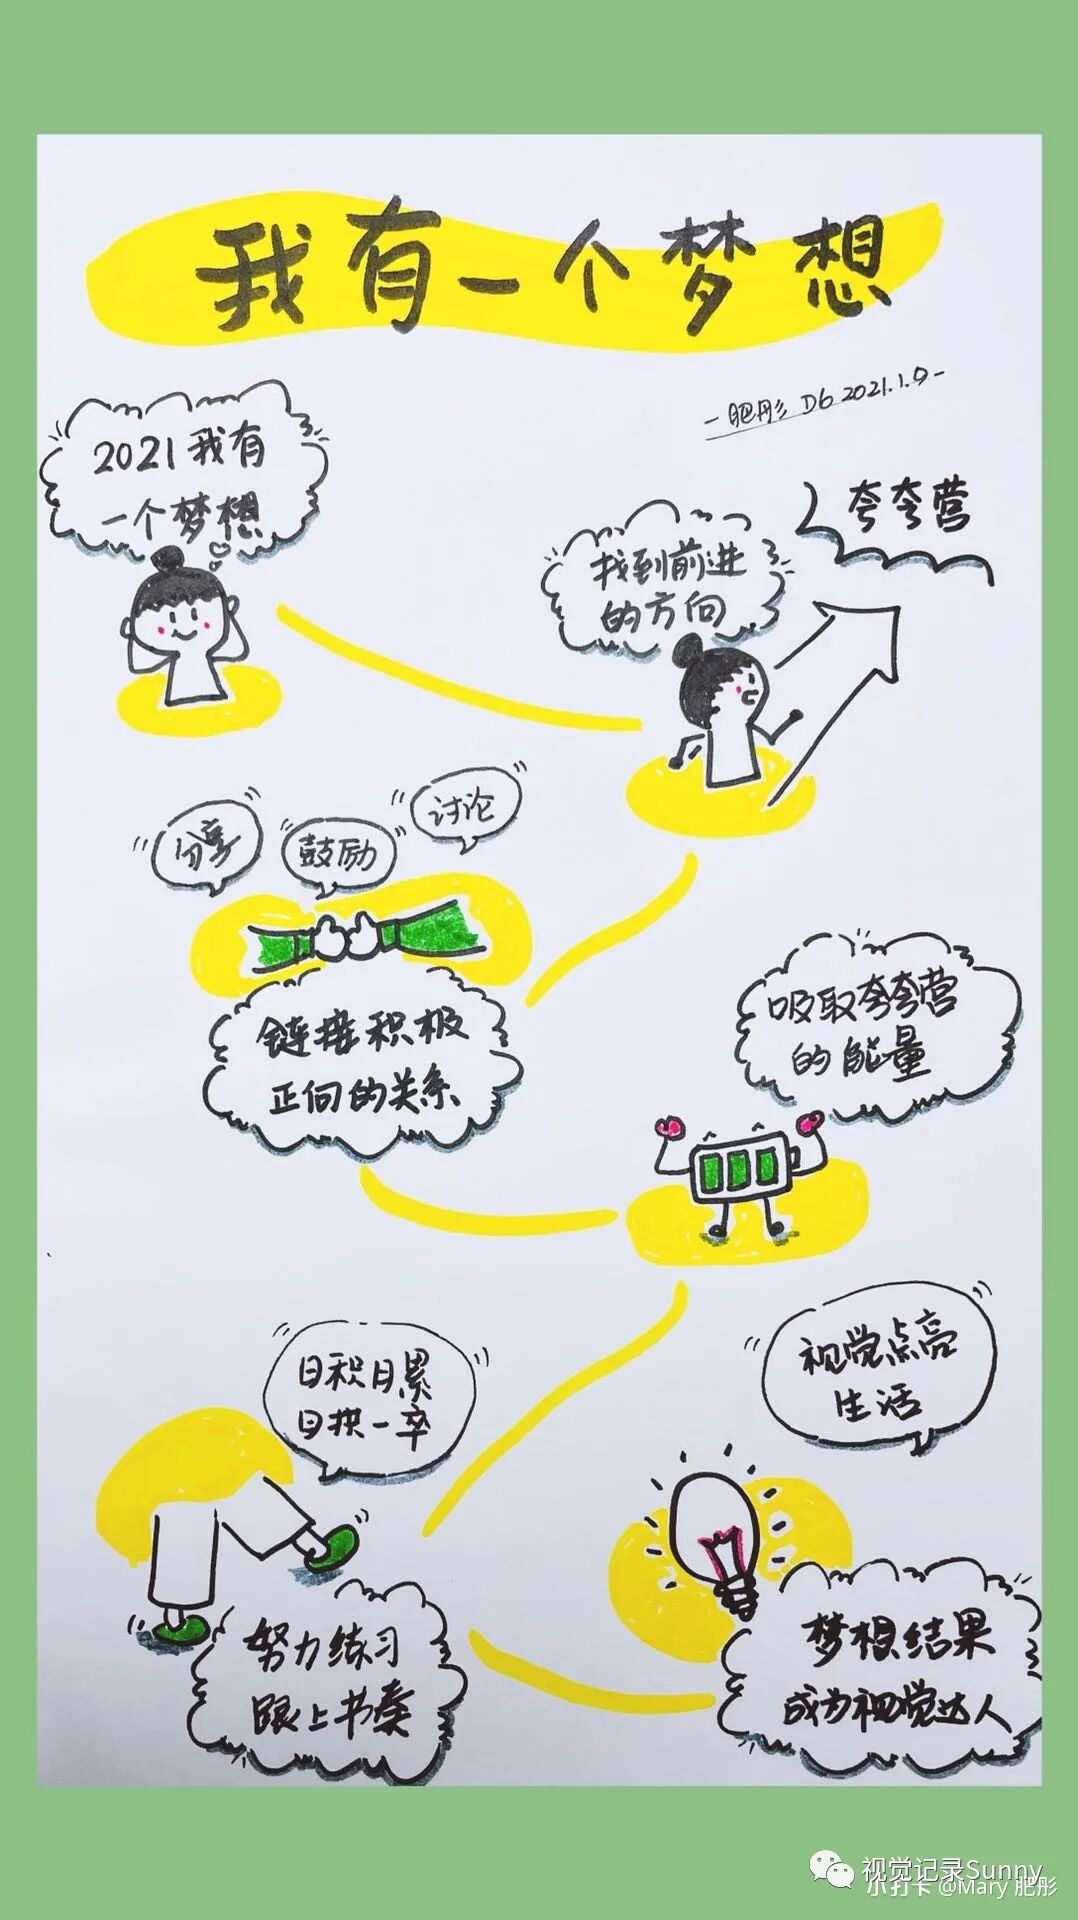 我有一个梦想
-肥彤 D6 2021.1.9-
2021我有
一个梦想
找到前进
的方向
夸夸营
分享
鼓励
讨论
链接积极
正向的关系
吸取夸夸营
的能量
日积月累
日拱一卒
努力练习
跟上书奏
视觉点亮
生活
梦想结果
成为视觉达人
视觉记录Sunny
小打卡 @Mary 肥彤